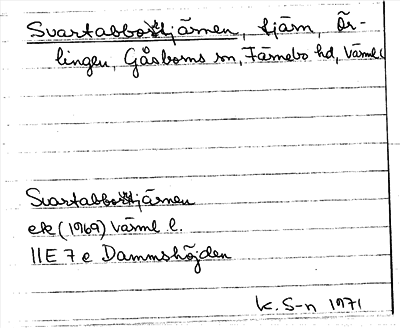 Svartabbotjärnen, tjärn, Ör-
lingen, Gåsborns sn, Färnebo hd, Värml.
Svartabbotjärnen
ek (1969) Värml l.
11E 7e Dammshöjden
K. S-n 1971